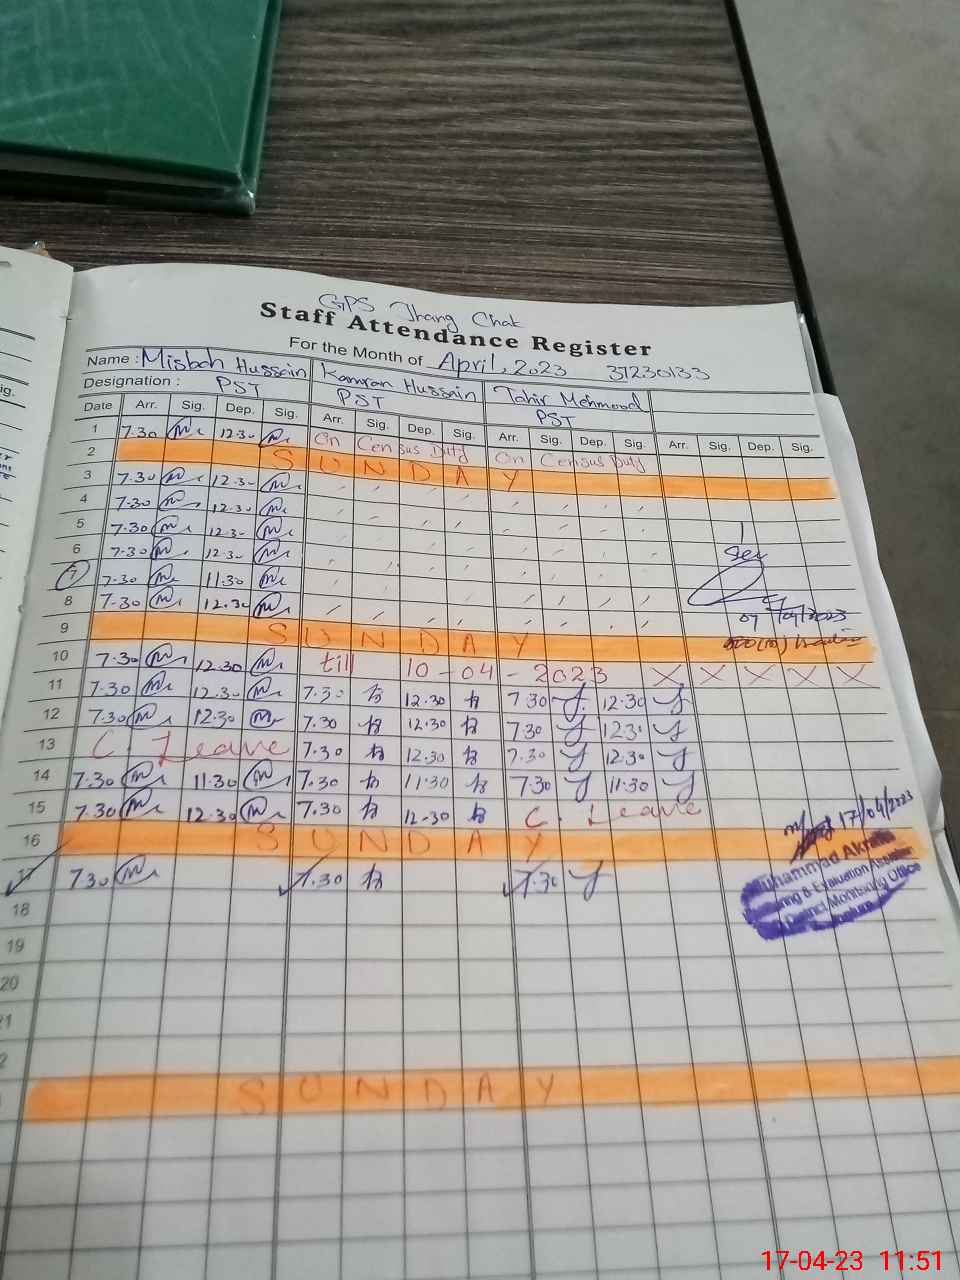 GPS Jhang Chak
Staff Attendance Register
For the Month of April, 2023 37230133
Name : Misbah Hussain Kamran Hussain Tahir Mehmood
Designation : PST PST PST
Date Arr. Sig. Dep. Sig. Arr. Sig. Dep. Sig. Arr. Sig. Dep. Sig. Arr. Sig. Dep. Sig.
1 7.30 12.30 On Census Duty On Census Duty
2 SUNDAY
3 7.30 12.30
4 7.30 12.30
5 7.30 12.30
6 7.30 12.30
7 7.30 11.30
8 7.30 12.30
9 SUNDAY
10 7.30 12.30 till 10-04-2023 X X X X X
11 7.30 12.30 7.30 12.30 7.30 12.30
12 7.30 12.30 7.30 12.30 7.30 12.30
13 C. Leave 7.30 12.30 7.30 12.30
14 7.30 11.30 7.30 11.30 7.30 11.30
15 7.30 12.30 7.30 12.30 C. Leave
16 SUNDAY
17 7.30 7.30 7.30
17/04/2023
Muhammad
& Evaluation Assistant
District Monitoring Office
18
19
20
21
SUNDAY
17-04-23 11:51